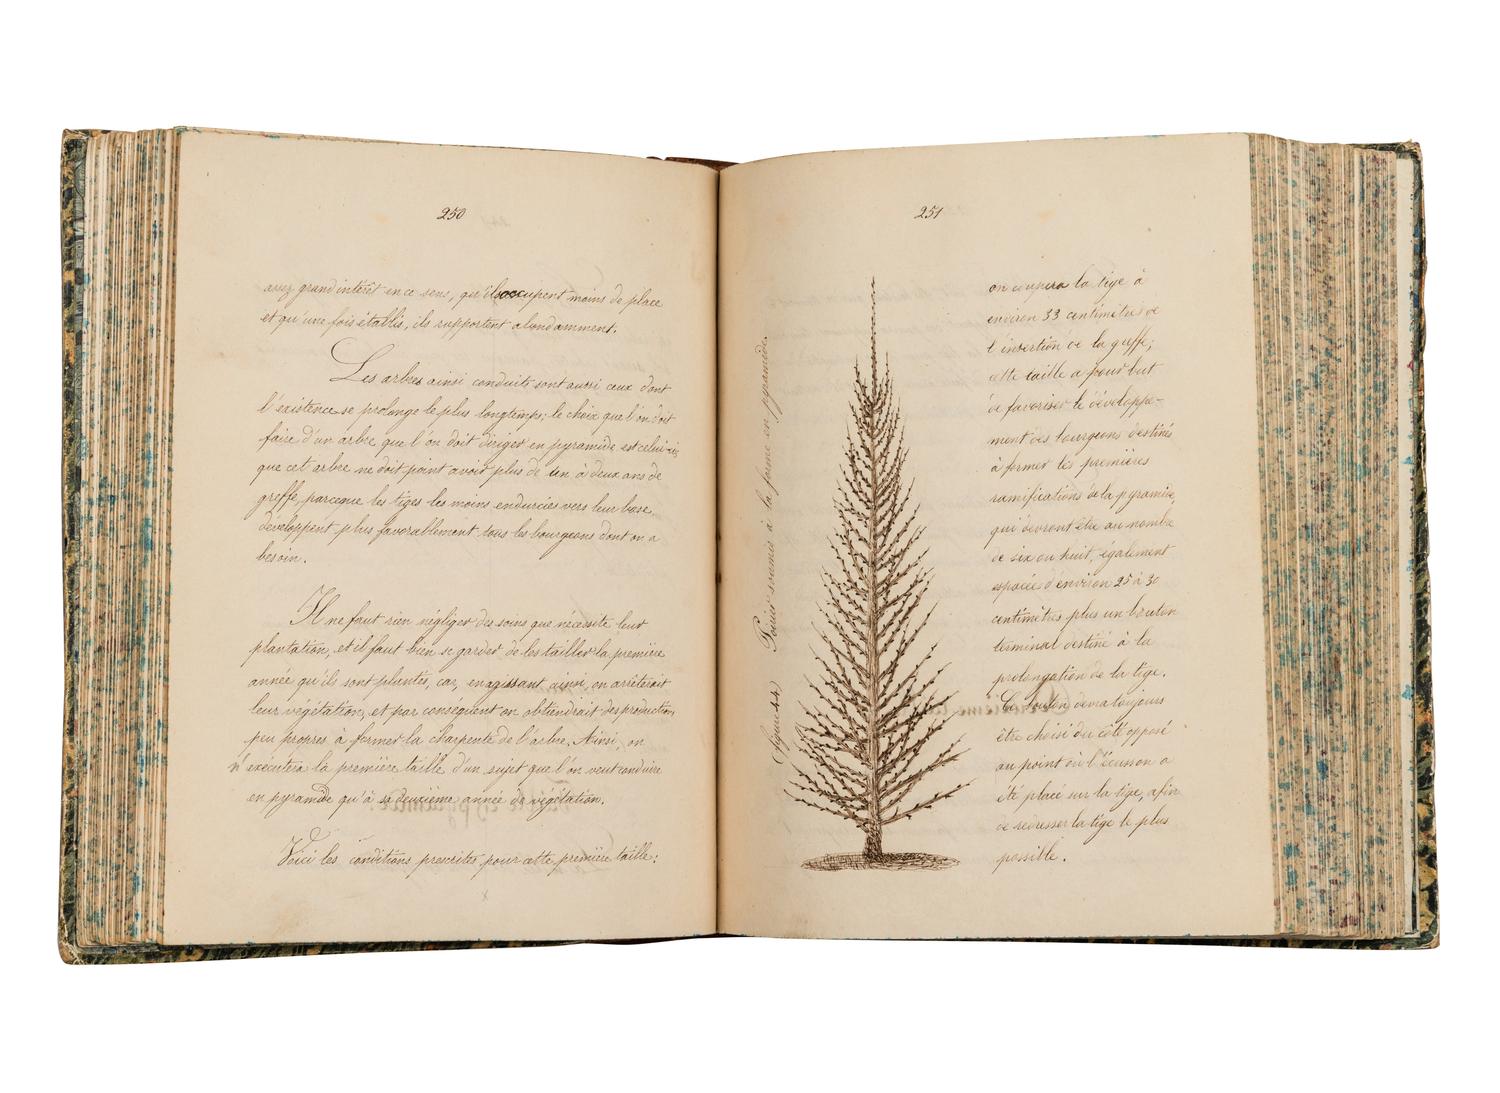 250
assez grand intérêt en ce sens, qu'ils occupent moins de place
et qu'une fois établis, ils rapportent abondamment.
Les arbres ainsi conduits sont aussi ceux dont
l'existence se prolonge le plus longtemps; le choix que l'on doit
faire d'un arbre que l'on doit diriger en pyramide est celui-ci,
que cet arbre ne doit point avoir plus de un à deux ans de
greffe, parceque les tiges les moins endurcies vers leur base,
développent plus favorablement tous les bourgeons dont on a
besoin.
Il ne faut rien négliger des soins que nécessite leur
plantation, et il faut bien se garder de les tailler la première
année qu'ils sont plantés, car, en agissant ainsi, on arrêterait
leur végétation, et par conséquent on obtiendrait des productions
peu propres à former la charpente de l'arbre. Ainsi, on
n'exécutera la première taille d'un sujet que l'on veut conduire
en pyramide qu'à sa deuxième année de végétation.
Voici les conditions prescrites pour cette première taille:
251
(figure 44) Poirier soumis à la forme en pyramide.
on coupera la tige à
environ 33 centimètres de
l'insertion de la greffe;
cette taille a pour but
de favoriser le développe-
ment des bourgeons destinés
à former les premières
ramifications de la pyramide,
qui devront être au nombre
de six ou huit, également
espacée d'environ 25 à 30
centimètres plus un bouton
terminal destiné à la
prolongation de la tige.
Ce bouton devra toujours
être choisi du côté opposé
au point où l'écusson a
été placé sur la tige, afin
de redresser la tige le plus
possible.